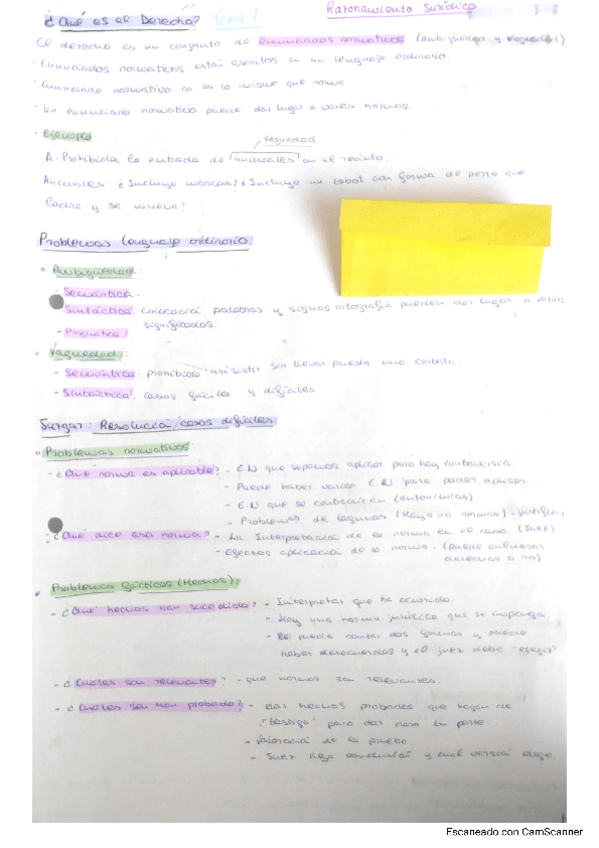 ¿Qué es el Derecho? Tema 1
Razonamiento Jurídico
El derecho es un conjunto de enunciados normativos (ambigüedad y vaguedad)
· Enunciados normativos están escritos en un lenguaje ordinario.
· Enunciado normativo no es lo mismo que norma
· Un enunciado normativo puede dar lugar a varias normas.
· Ejemplo
vaguedad
A - Prohibida la entrada de animales en el recinto.
Animales: ¿Incluye moscas? ¿Incluye un robot con forma de perro que
ladra y se mueve?
Problemas lenguaje ordinario
· Ambigüedad:
- Semántica.
Sintáctica: palabras y signos ortografía pueden dar lugar a varios
significados.
- Pragmática.
· Vaguedad:
- Semántica: prohibido asistir sin llevar puesta una corbata.
- Sintáctica: casos fáciles y difíciles
Juzgar: Resolución casos difíciles
· Problemas normativos
- ¿Qué norma es aplicable? - E.N que sepamos aplicar pero hay controversia.
- Puede haber varios E.N para poder aplicar.
- E.N que se contradicen (antinomias)
- Problemas de lagunas (Haya no normas) -
- ¿Qué dice esa norma? - La Interpretación de la norma en el caso. (Juez)
- Efectos aplicación de la norma. (puede
a no)
· Problemas fácticos (Hechos):
- ¿Qué hechos han sucedido? - Interpretar que ha ocurrido.
- Hay una norma jurídica que se
- Se puede contar dos formas y puede
haber desacuerdos y el juez debe "elegir"
- ¿Cuáles son relevantes? - que normas son relevantes.
- ¿Cuáles se han probado? - dar hechos probados que hagan de
"testigo" para dar a tu parte.
- Valoración de la prueba
- Juez llega conclusión y cuál versión elige.
Escaneado con CamScanner